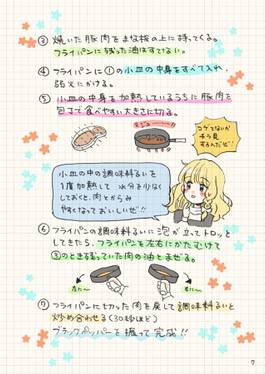 ③ 焼いた豚肉をまな板の上に持ってくる。
フライパンに残った油はすてない。
④ フライパンに①の小皿の中身をすべて入れ、
弱火にかける。
⑤ 小皿の中身を加熱しているうちに豚肉を
包丁で食べやすい大きさに切る。
コゲてないか
チラ見
するんだぜ!
小皿の中の調味料るいを
1度加熱して 水分を少なく
しておくと、肉とからみ
やすくなっておいしいぜ!!
⑥ フライパンの調味料るいに泡が立ってトロッと
してきたら、フライパンを左右にかたむけて
③のとき残っていた肉の油とまぜる。
左に〜
右に〜
⑦ フライパンに切った肉を戻して調味料るいと
炒め合わせる(30秒ほど)
ブラックペッパーを振って完成!!
7